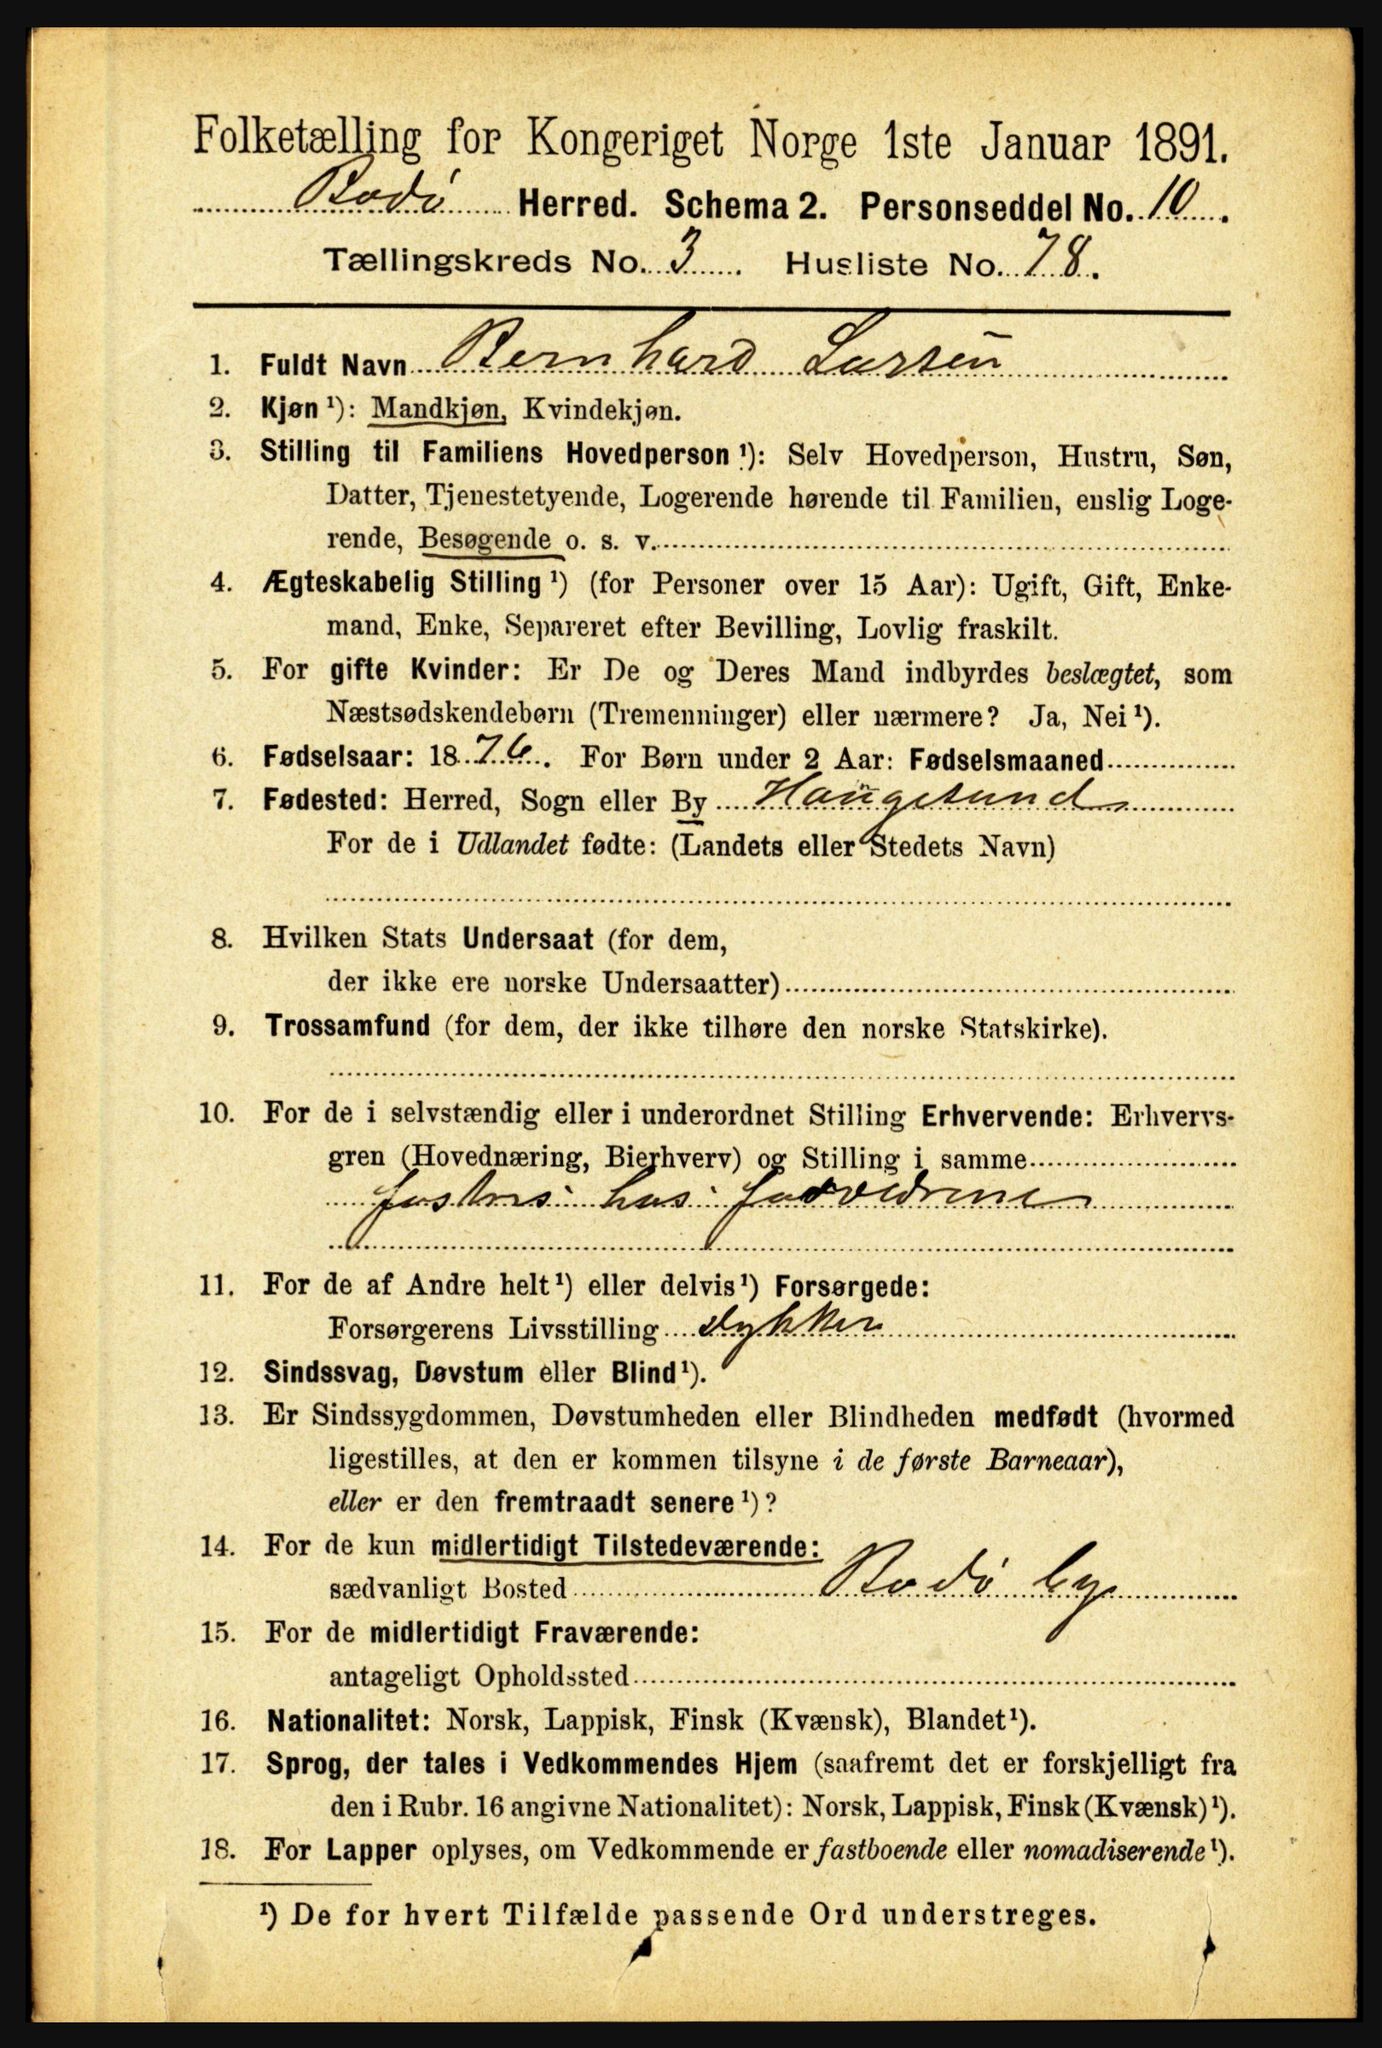 Folketælling for Kongeriget Norge 1ste Januar 1891.
Bodø Herred. Schema 2. Personseddel No. 10.
Tællingskreds No. 3. Husliste No. 78.
1. Fuldt Navn Bernhard Larsen
2. Kjøn ¹): Mandkjøn, Kvindekjøn.
3. Stilling til Familiens Hovedperson ¹): Selv Hovedperson, Hustru, Søn,
Datter, Tjenestetyende, Logerende hørende til Familien, enslig Loge-
rende, Besøgende o. s. v.
4. Ægteskabelig Stilling ¹) (for Personer over 15 Aar): Ugift, Gift, Enke-
mand, Enke, Separeret efter Bevilling, Lovlig fraskilt.
5. For gifte Kvinder: Er De og Deres Mand indbyrdes beslægtet, som
Næstsødskendebørn (Tremenninger) eller nærmere? Ja, Nei ¹).
6. Fødselsaar: 1876. For Børn under 2 Aar: Fødselsmaaned
7. Fødested: Herred, Sogn eller By Haugesund
For de i Udlandet fødte: (Landets eller Stedets Navn)
8. Hvilken Stats Undersaat (for dem,
der ikke ere norske Undersaatter)
9. Trossamfund (for dem, der ikke tilhøre den norske Statskirke).
10. For de i selvstændig eller i underordnet Stilling Erhvervende: Erhvervs-
gren (Hovednæring, Bierhverv) og Stilling i samme
hos
11. For de af Andre helt ¹) eller delvis ¹) Forsørgede:
Forsørgerens Livsstilling dykker
12. Sindssvag, Døvstum eller Blind ¹).
13. Er Sindssygdommen, Døvstumheden eller Blindheden medfødt (hvormed
ligestilles, at den er kommen tilsyne i de første Barneaar),
eller er den fremtraadt senere ¹)?
14. For de kun midlertidigt Tilstedeværende:
sædvanligt Bosted Bodø by
15. For de midlertidigt Fraværende:
antageligt Opholdssted
16. Nationalitet: Norsk, Lappisk, Finsk (Kvænsk), Blandet ¹).
17. Sprog, der tales i Vedkommendes Hjem (saafremt det er forskjelligt fra
den i Rubr. 16 angivne Nationalitet): Norsk, Lappisk, Finsk (Kvænsk) ¹).
18. For Lapper oplyses, om Vedkommende er fastboende eller nomadiserende ¹).
¹) De for hvert Tilfælde passende Ord understreges.